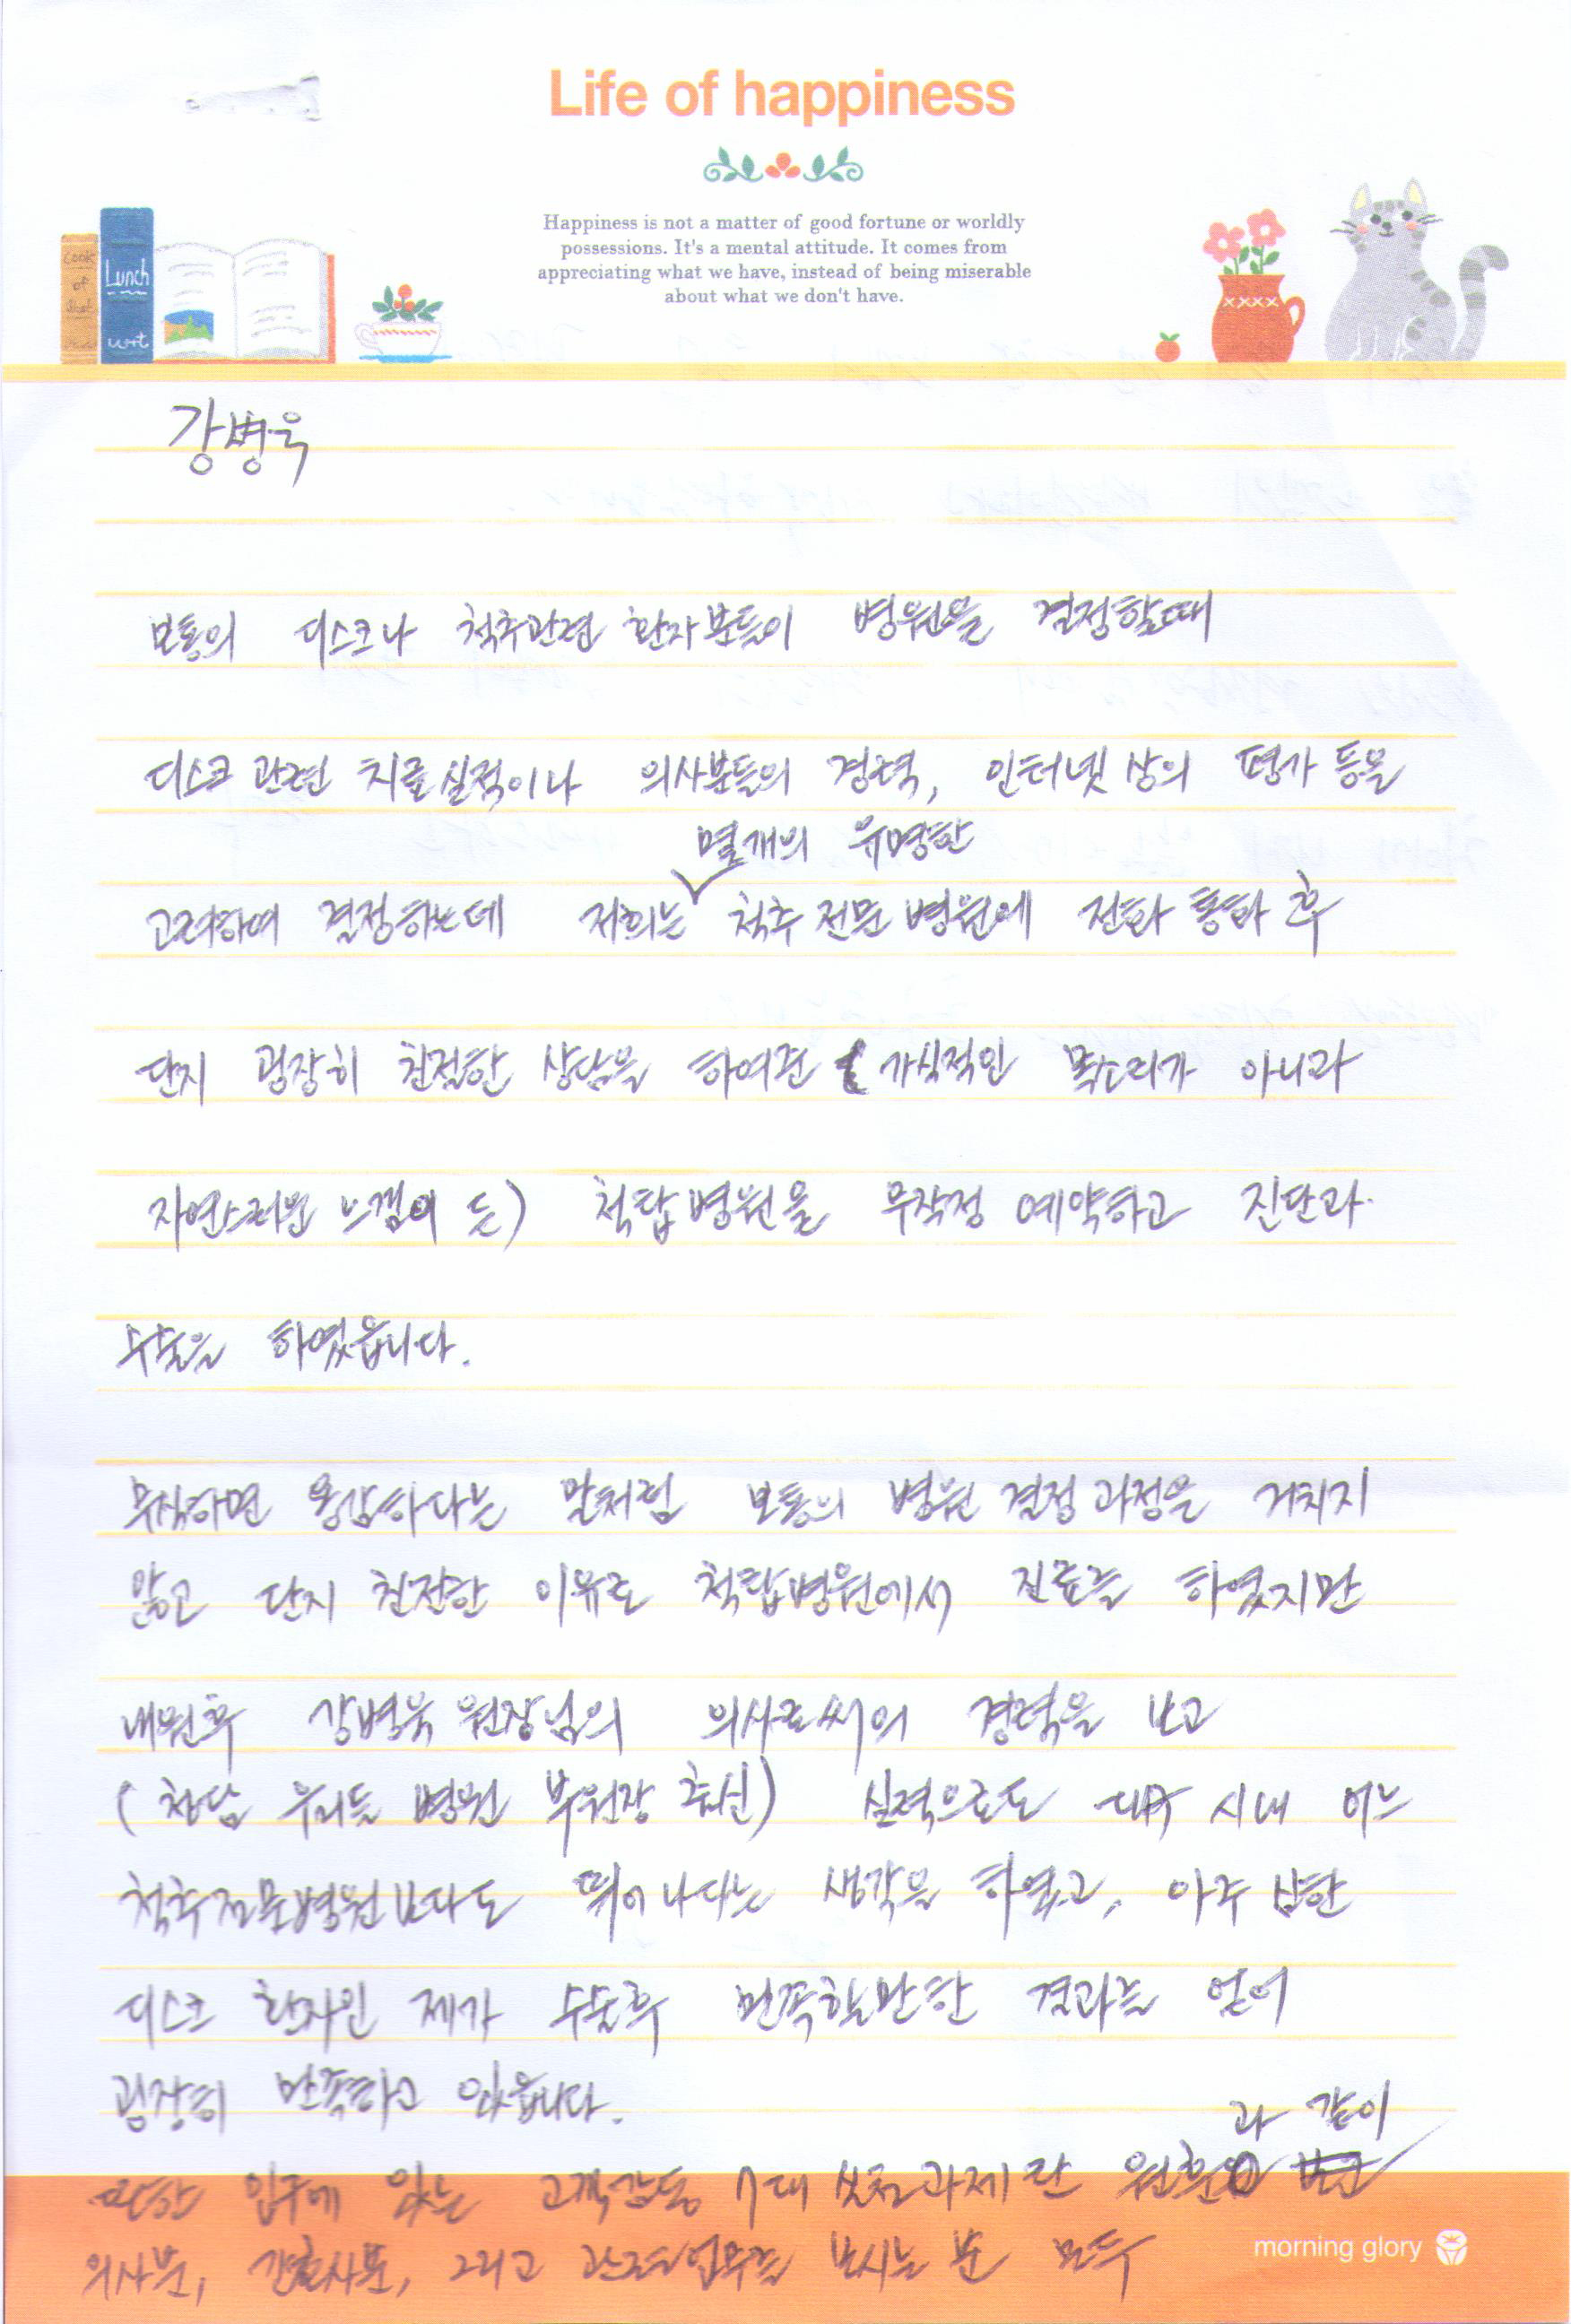 Life of happiness
Happiness is not a matter of good fortune or worldly
possessions. It's a mental attitude. It comes from
appreciating what we have, instead of being miserable
about what we don't have.
Cook
of
Lunch
강병욱
보통의 디스크나 척추관련 환자분들이 병원을 결정할때
디스크 관련 치료실적이나 의사분들의 경력, 인터넷 상의 평가 등을
몇개의 유명한
고려하여 결정하는데 저희는 척추 전문 병원에 전화 통화 후
단지 굉장히 친절한 상담을 하여준 ( 가식적인 목소리가 아니라
자연스러운 느낌이 든) 척탑병원을 무작정 예약하고 진단과
수술을 하였읍니다.
무식하면 용감하다는 말처럼 보통의 병원 결정과정을 거치지
않고 단지 친절한 이유로 척탑병원에서 진료를 하였지만
내원후 강병욱 원장님의 의사로써의 경력을 보고
( 청담 우리들 병원 부원장 출신) 실적으로도 대구 시내 어느
척추전문병원보다도 뛰어나다는 생각을 하였고, 아주 심한
디스크 환자인 제가 수술후 만족할만한 결과를 얻어
굉장히 만족하고 있읍니다.
과 같이
입구에 있는 고객감동 7대 실천과제란 원훈
의사분, 간호사분, 그리고 업무를 보시는 분 모두
morning glory